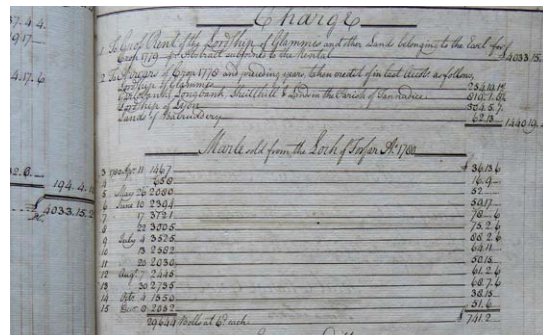 37. 4. 4.
9.17.
4.17. 6
02.8.
194. 4.
4033.15.2
Charge
1 To Gross Rent of the Lordship of Glammes and other Lands belonging to the Earl for
Crop 1779 as Abstract subjoined to the Rental £4033.15.
2 To Arrears of Crop 1778 and preceding years, then credit'd in last Accots as follows,
Lordship of Glammes
Longbank, & Lands in the Parish of
Lordship of Lyon 304.5.7
Lands of 62.13 14401.9.
Marle sold from the Loch of Forfar Ao. 1780
3 1780 Apr. 11 1467 £ 36.13.6
4 658 16.9
5 May 26 2080 52
6 June 10 2394 59.17
7 17 3121 78. 6
8 22 3005 75.2.6
9 July 4 3525 88.2.6
10 13 2582 64.11
11 25 2030 50.15
12 Augt. 7 2445 61.2.6
13 30 2735 68.7.6
14 Octr. 4 1550 38.15
15 Decr. 8 2052 51.6
29644 Bolls at 6d each £ 741.2